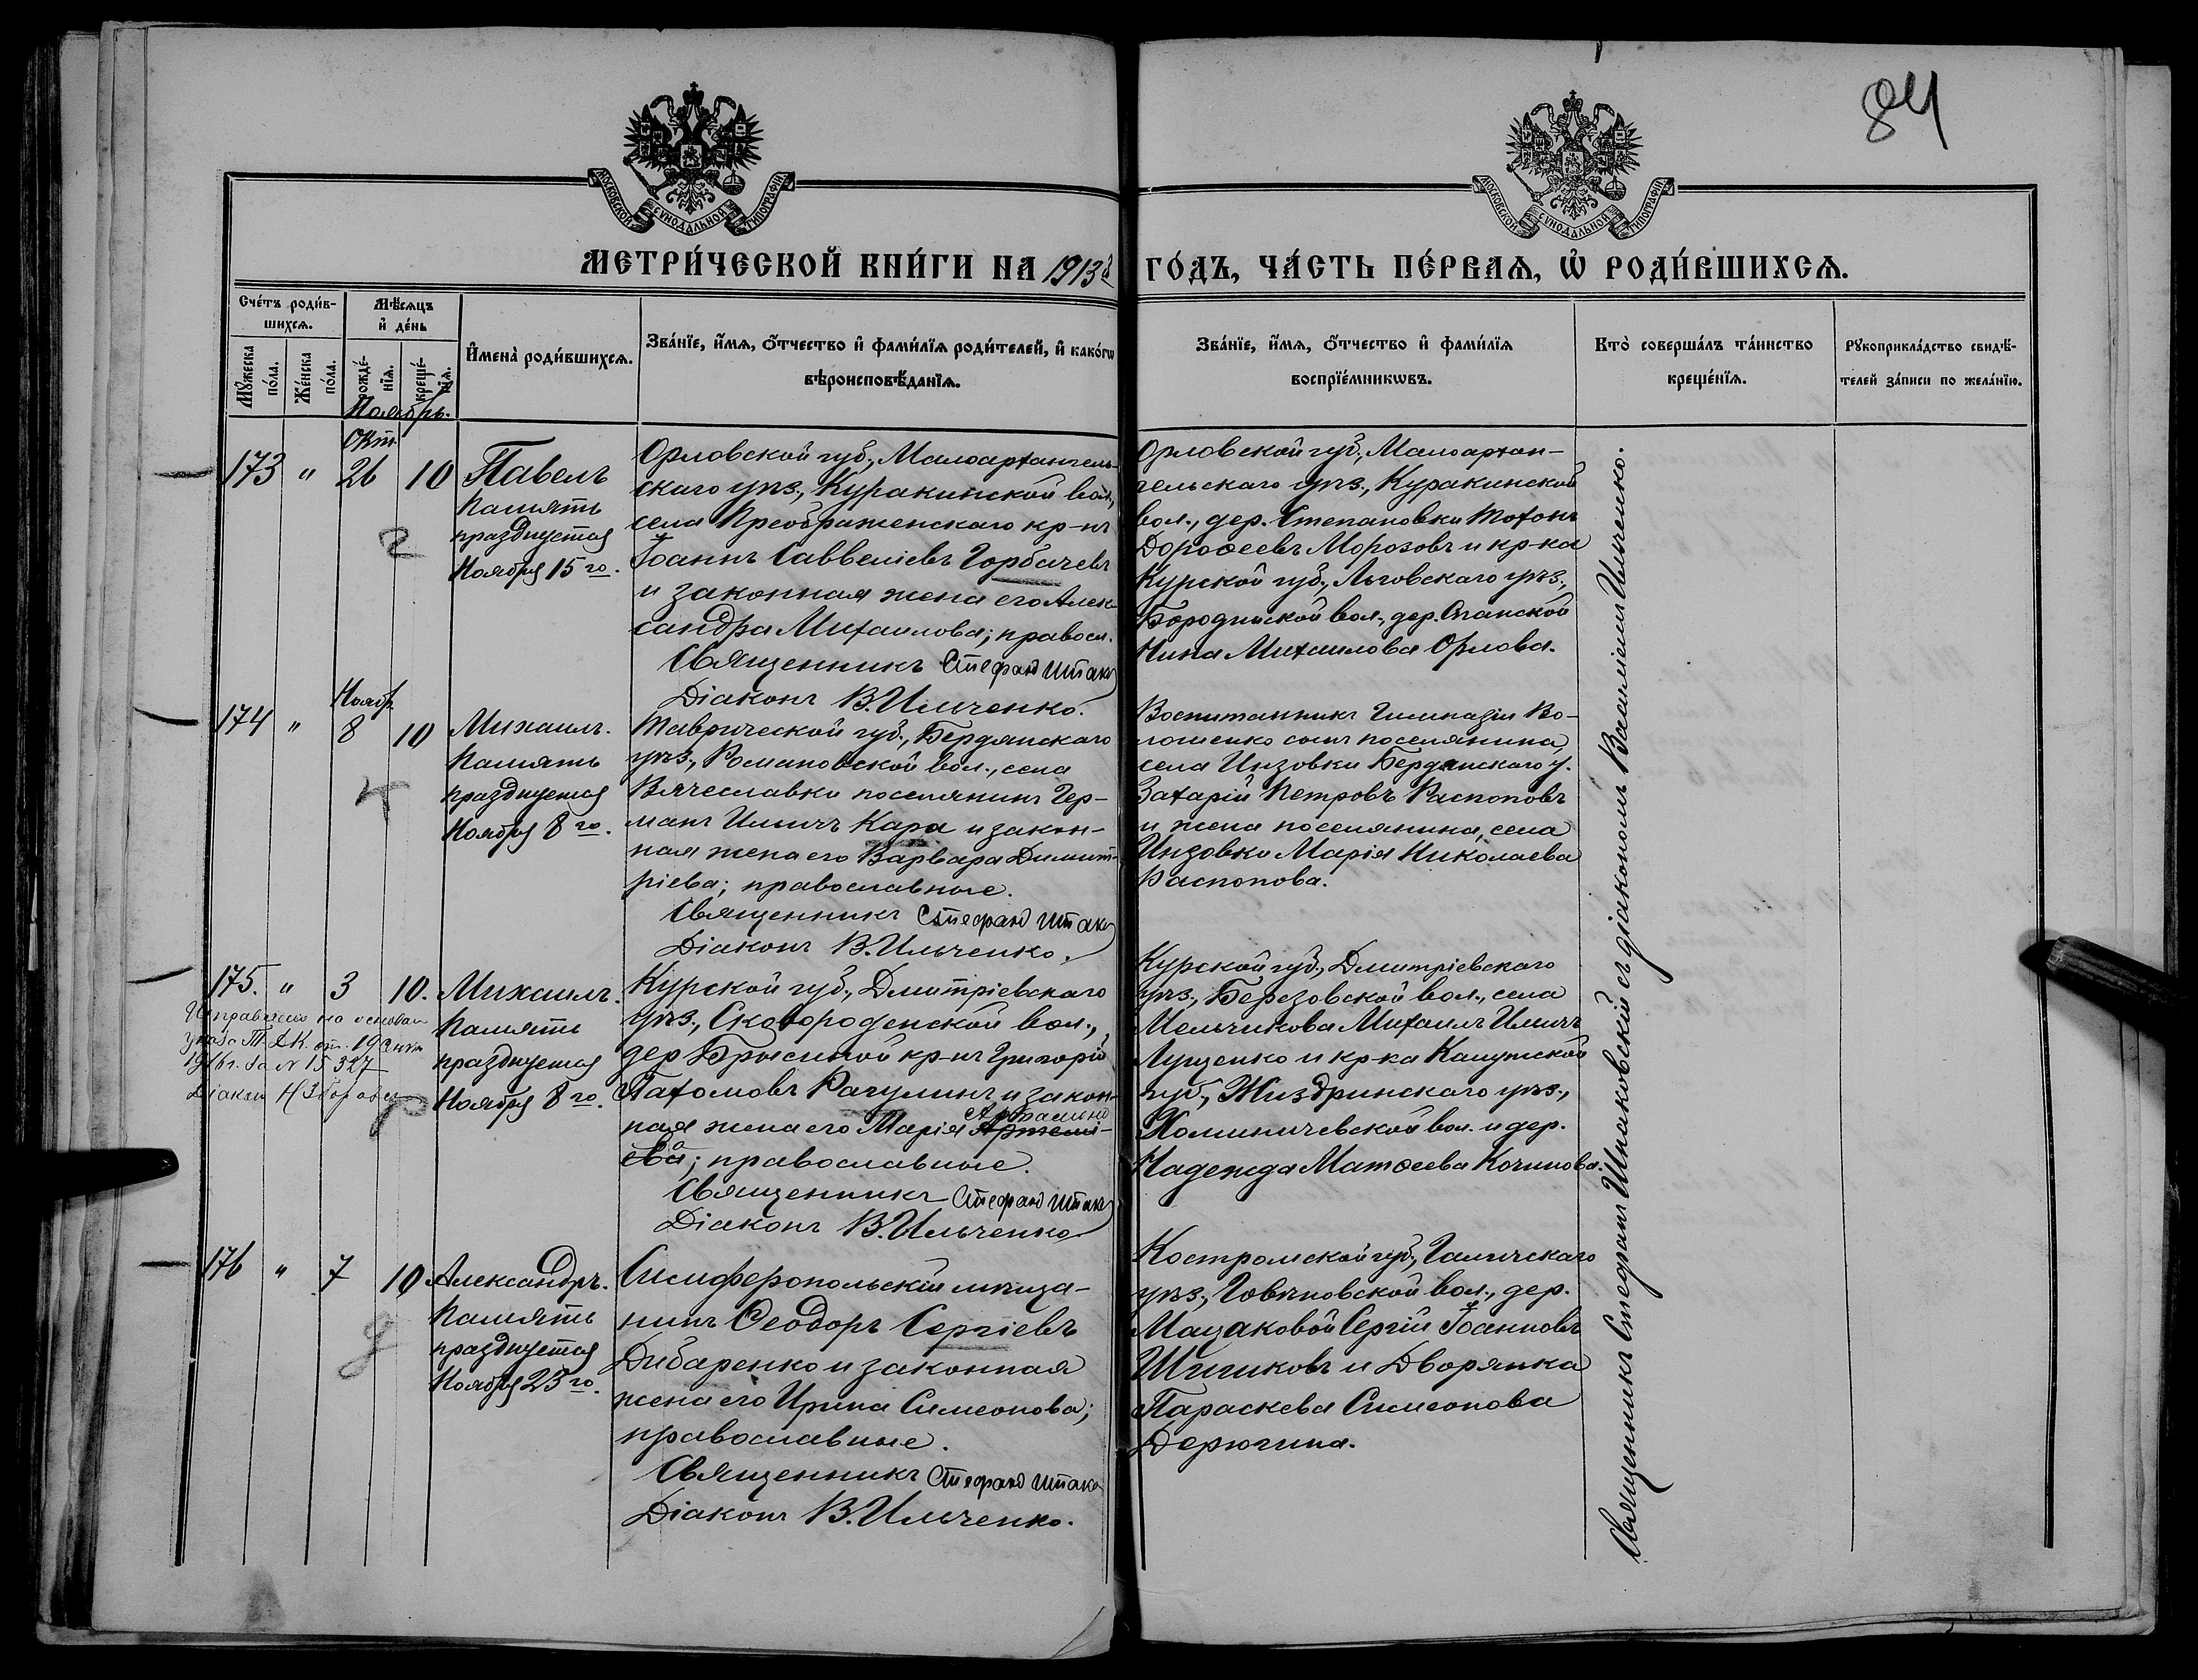 84
МОСКОВСКОЙ СѴНОДАЛЬНОЙ ТИПОГРАФІИ
МОСКОВСКОЙ СѴНОДАЛЬНОЙ ТИПОГРАФІИ
МЕТРИ́ЧЕСКОЙ КНИ́ГИ НА 1913й ГО́ДЪ, ЧА́СТЬ ПЕ́РВАЯ, Ѡ҆ РОДИ́ВШИХСЯ.
Сче́тъ роди́в-
шихся.
Мꙋ́жеска
по́ла.
Же́нска
по́ла.
Мѣ́сяцъ
и҆ де́нь
рожде́-
нїя.
креще́-
нїя.
И҆мена̀ роди́вшихся.
Зва́нїе, и҆́мя, ѻ҆́тчество и҆ фами́лїя роди́телей, и҆ како́гѡ
вѣроисповѣ́данїя.
Зва́нїе, и҆́мя, ѻ҆́тчество и҆ фами́лїя
воспрїе́мникѡвъ.
Кто̀ соверша́лъ та́инство
креще́нїя.
Рꙋкоприкла́дство свидѣ́-
телей за́писи по жела́нїю.
Ноябрь.
Окт.
173 " 26 10
Павелъ
Память
празднуется
Ноября 15го.
Орловской губ., Малоархангель-
скаго уѣз., Куракинской вол.,
села Преображенскаго кр-нъ
Іоаннъ Саввеліевъ Горбачевъ
и законная жена его Алек-
сандра Михаилова; правосл.
Священникъ Стефанъ
Діаконъ В. Ильченко.
Орловской губ., Малоархан-
гельскаго уѣз., Куракинской
вол., дер. Степановки Тихонъ
Дороѳеевъ Морозовъ и кр-ка
Курской губ., Льговскаго уѣз.,
вол., дер.
Нина Михаилова Орлова.
Нояб.
174 " 8 10
Михаилъ.
Память
празднуется
Ноября 8го.
Таврической губ., Бердянскаго
уѣз., Романовской вол., села
Вячеславки поселянинъ Гер-
манъ Ильичъ Кара и закон-
ная жена его Варвара Димит-
ріева; православные.
Священникъ Стефанъ
Діаконъ В. Ильченко.
Воспитанникъ Гимназіи Во-
лошенко сынъ поселянина,
села Инзовки Бердянскаго у.
Захарій Петровъ Распоповъ
и жена поселянина, села
Инзовки Марія Николаева
Распопова.
175. " 3 10.
Исправлено на основан
указа Т. Д. К. от. 19
за № 15327
Діакон Н
Михаилъ.
Память
празднуется
Ноября 8го.
Курской губ., Дмитріевскаго
уѣз., Сковороденской вол.,
дер. кр-нъ Григорій
Пахомовъ Рагулинъ и закон-
ная жена его Марія Артемі-
ева; православные.
Священникъ Стефанъ
Діаконъ В. Ильченко
Курской губ., Дмитріевскаго
уѣз., Березовской вол., села
Мельчикова Михаилъ Ильичъ
Луценко и кр-ка Калужской
губ., Жиздринскаго уѣз.,
вол. и дер.
Надежда Матѳеева Кочинова.
176 " 7 10
Александръ.
Память
празднуется
Ноября 23го.
Симферопольскій мѣща-
нинъ Ѳеодоръ Сергіевъ
Дибаренко и законная
жена его Ирина Симеонова;
православные.
Священникъ Стефанъ
Діаконъ В. Ильченко.
Костромской губ., Галичскаго
уѣз., вол., дер.
Мацаковой Сергій Іоанновъ
Шигиковъ и Дворянка
Параскева Симеонова
Дерюгина.
Священникъ Стефанъ съ діакономъ Василіемъ Ильченко.